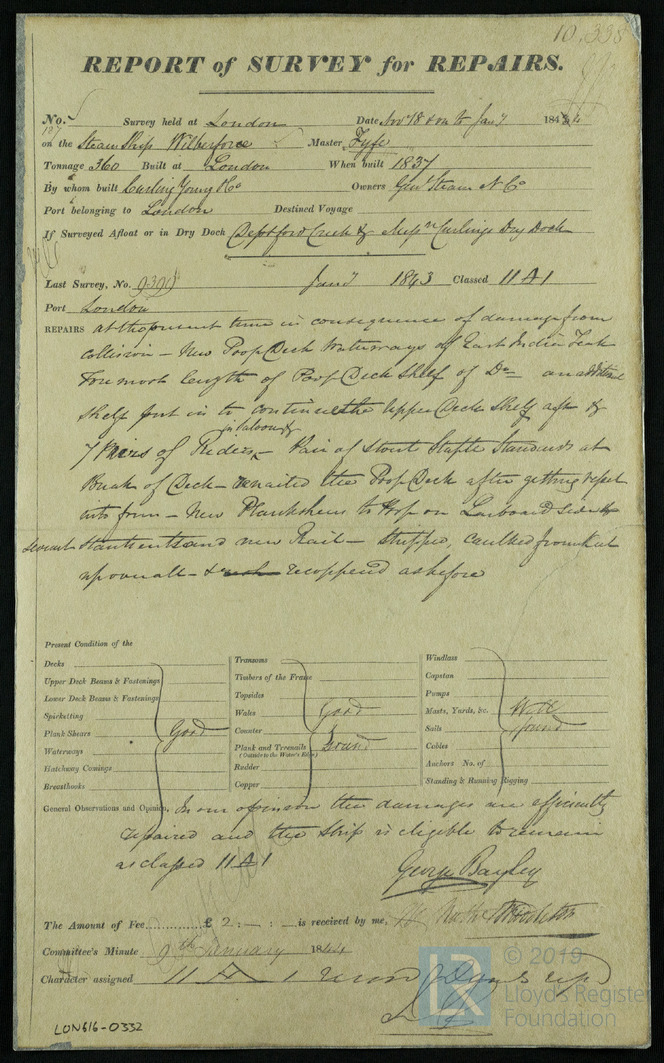 10,338
REPORT of SURVEY for REPAIRS.
No. Survey held at London Date Nov 18 to Jany 1844
187
on the Steam Ship Wilberforce Master Fyfe
Tonnage 360 Built at London When built 1837
By whom built Curling Young & Co Owners Genl Steam N Co
Port belonging to London Destined Voyage
If Surveyed Afloat or in Dry Dock Deptford Creek & Messrs Curlings Dry Dock
Last Survey, No. 9399 Jany 1843 Classed 11 A 1
Port London
REPAIRS at the present time in consequence of damage from
Collision - New Poop Deck Waterways of East India Teak
Foremost length of Poop Deck Shelf of Do an additional
Shelf put in to continue the Upper Deck Shelf aft &
in Saloon &
7 Pairs of Riders - Pair of Stout Staple Standards at
Break of Deck - the Poop Deck after getting
- New Planksheer to Poop on Larboard side &
several Stanchions and new Rail - Stripped, Caulked from
up over all - & recoppered as before
Present Condition of the
Decks
Upper Deck Beams & Fastenings
Lower Deck Beams & Fastenings
Spirketting
Plank Shears Good
Waterways
Hatchway Comings
Breasthooks
Transoms
Timbers of the Frame
Topsides
Wales Good
Counter
Plank and Treenails Sound
(Outside to the Water's Edge)
Rudder
Copper
Windlass
Capstan
Pumps
Masts, Yards, &c. Well
Sails found
Cables
Anchors No. of
Standing & Running Rigging
General Observations and Opinion, In our opinion the damages are efficiently
repaired and the Ship is eligible to remain
as classed 11 A 1
George Bayley
The Amount of Fee £ 2 : - : - is received by me,
Committee's Minute 9th January 1844
Character assigned 11 A 1
LON616-0332
© 2019
Lloyd's Register
Foundation
LR